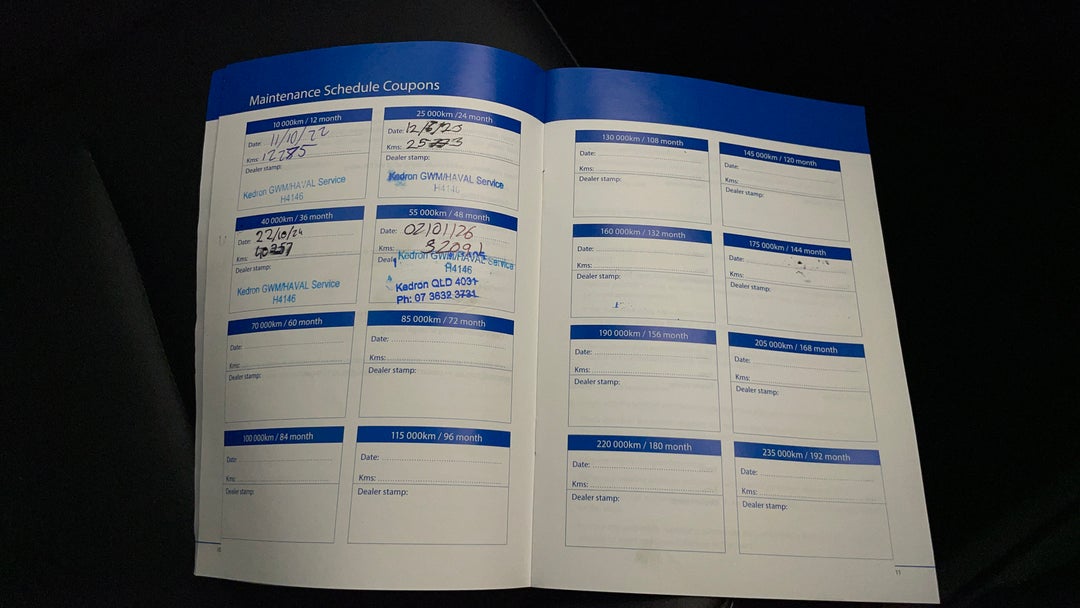 Maintenance Schedule Coupons
10 000km / 12 month
Date: 11/10/22
Kms: 12285
Dealer stamp:
Kedron GWM/HAVAL Service
H4146
25 000km /24 month
Date: 12/6/23
Kms:
Dealer stamp:
Kedron GWM/HAVAL Service
H4146
40 000km / 36 month
Date: 22/10/24
Kms:
Dealer stamp:
Kedron GWM/HAVAL Service
H4146
55 000km / 48 month
Date: 02/01/26
Kms:
Kedron GWM/HAVAL Service
H4146
Kedron QLD 4031
Ph: 07 3632 3731
70 000km / 60 month
Date:
Kms:
Dealer stamp:
85 000km / 72 month
Date:
Kms:
Dealer stamp:
100 000km / 84 month
Date:
Kms:
Dealer stamp:
115 000km / 96 month
Date:
Kms:
Dealer stamp:
10
130 000km / 108 month
Date:
Kms:
Dealer stamp:
145 000km / 120 month
Date:
Kms:
Dealer stamp:
160 000km / 132 month
Date:
Kms:
Dealer stamp:
175 000km / 144 month
Date:
Kms:
Dealer stamp:
190 000km / 156 month
Date:
Kms:
Dealer stamp:
205 000km / 168 month
Date:
Kms:
Dealer stamp:
220 000km / 180 month
Date:
Kms:
Dealer stamp:
235 000km / 192 month
Date:
Kms:
Dealer stamp:
11